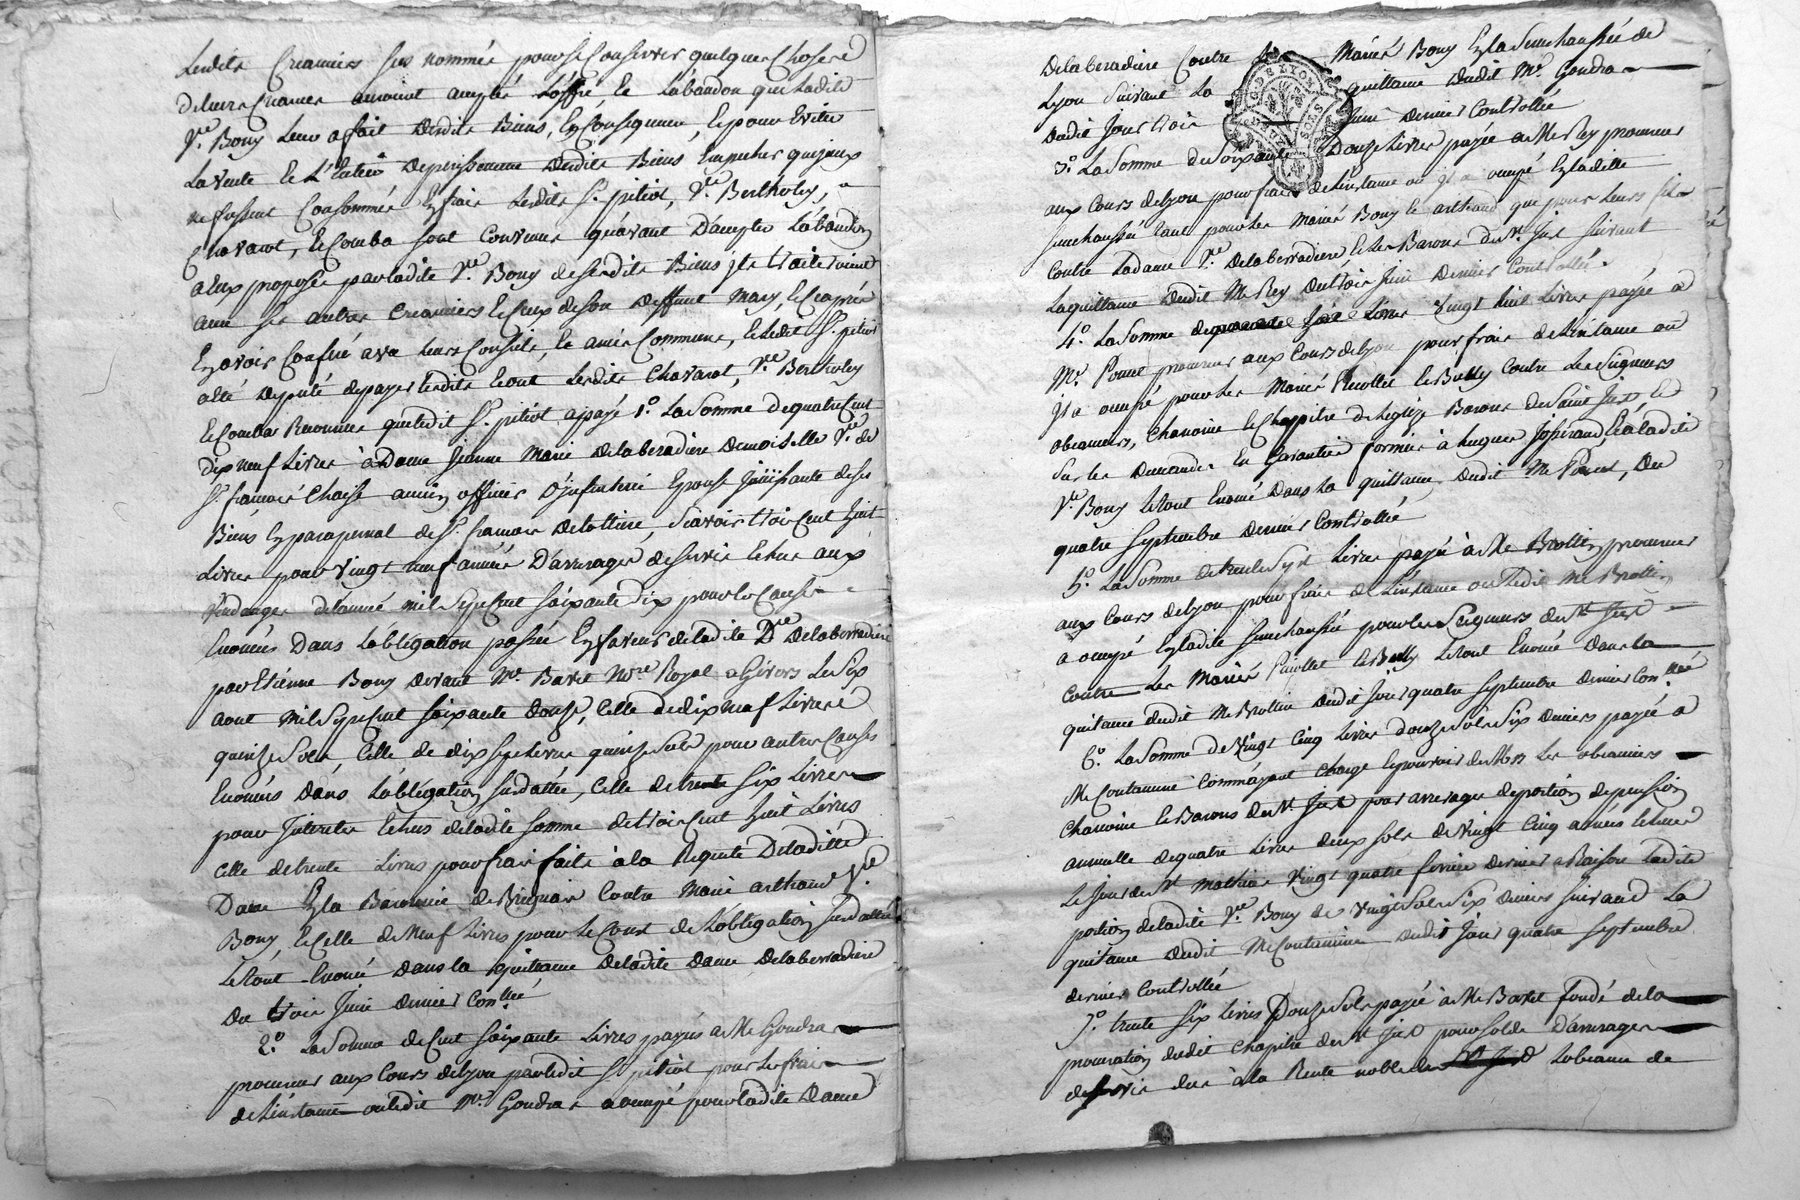 Lesdits Creanciers sus nommés pour se Conserver quelque Chose
de leurs Creances auroient accepté L'offre, et L'abandon que Ladite
Ve. Bony leur a fait desdits Biens, En Consequence, Et pour Eviter
La vente et L'Entier deperissement desdits Biens Empecher que jceux
ne fussent Consommés En frais Lesdits Sr. pitiot, Ve. Bertholey,
Chavarot, et Comba sont Convenus qu'avant D'accepter L'abandon
a Eux proposé par ladite Ve. Bony de sesdits Biens jls traiteroient
avec ses autres Creanciers et Ceux de son deffunt Mary, et apres
En avoir Conferé avec leurs Conseils, et amis Communs, Ledit Sr. pitiot
a été deputé de payer lesdits Et ont Lesdits Chavarot, Ve. Bertholey
et Combas Reconnu que ledit Sr. pitiot a payé 1o. La Somme de quatre Cent
dix neuf Livres à dame Jeanne Marie delaberadiere demoiselle Ve. de
Sr. françois Chaise ancien officier d'jnfanterie Epouse Jouissante de ses
Biens En parapernal de Sr. françois delolliere, Scavoir trois Cent huit
Livres pour vingt neuf années D'arrerages de servis Echus aux
vendanges de l'année mil sept Cent soixante dix pour les Causes
Enoncées dans L'obligation passée En faveur de ladite De. delaberadiere
par Etienne Bony devant Me. Baret Nore. Royal a Givors Le Six
aout mil sept Cent soixante douze, Celle de dix neuf Livres
quinze Sols, Celle de dix sept Livres quinze Sols pour autres Causes
Enoncées dans L'obligation susdattée, Celle de trente Six Livres
pour Jnterets Echus de ladite somme de trois Cent huit Livres
Celle de trente Livres pour frais faits à la Requete De ladite
Dame En la Baronnie de Brignais Contre Marie arthaud Ve.
Bony, et Celle de Neuf Livres pour Le Cout de L'obligation susdattée
Le tout Enoncé dans la quittance de ladite dame delaberadiere
du trois Juin dernier Contllée
2o. La Somme de Cent soixante Livres payées a Me Gondra
procureur aux Cours de Lyon par ledit Sr. pitiot pour les frais
de L'instance ou ledit Me. Gondras a occupé pour ladite Dame
Delaberadiere Contre les Mariés Bony En la Senechaussée de
Lyon Suivant La quittance dudit Me. Gondras
dudit Jour trois Juin dernier Controllée
3o. La Somme de Soixante Douze Livres payée a Me Rey procureur
aux Cours de Lyon pour frais de L'instance ou jl a occupé En ladite
Senechaussée tant pour les Mariés Bony et arthaud que pour leurs fils
Contre La dame Ve. Delaberadiere et Les Barons de St. Just suivant
La quittance dudit Me Rey du trois Juin dernier Controllée
4o. La Somme de vingt huit Livres payée a
Me. Poncet procureur aux Cours de Lyon pour frais de L'instance ou
jl a occupé pour les Mariés Recollet et Bully Contre Les Seigneurs
obeanciers, Chanoines et Chapitre de leglize Barons de Saint Just et
Sur les Demandes En Garantie formées à hugues Josserand, et a ladite
Ve. Bony Le tout Enoncé Dans la quittance dudit Me Poncet, du
quatre Septembre dernier Controllée
5o. La Somme de trente Sept Livres payée à Me Brottin procureur
aux Cours de Lyon pour frais de L'instance ou ledit Me Brottin
a occupé En ladite Senechaussée pour les Seigneurs de St. Just
Contre Les Mariés Recollet et Bully Le tout Enoncé dans la
quittance dudit Me Brottin dudit Jour quatre Septembre dernier Contllée
6o. La Somme de Vingt Cinq Livres douze Sols Six deniers payée a
Me Contamine Commayant Charge et pouvoir de Mrs Les obeanciers
Chanoines et Barons de St. Just pour arrerages de portion de pension
annuelle de quatre Livres deux Sols de Vingt Cinq années Echues
Le Jour de St. Mathias Vingt quatre fevrier dernier a Raison Ladite
portion de ladite Ve. Bony de Vingt Sols Six deniers suivant La
quittance dudit Me Contamine dudit Jour quatre Septembre
dernier Controllée
7o. trente Six Livres Douze Sols payée à Me Baret fondé de la
procuration dudit Chapitre de St. Just pour solde D'arrerages
de servis dus à la Rente noble de Lobeance de